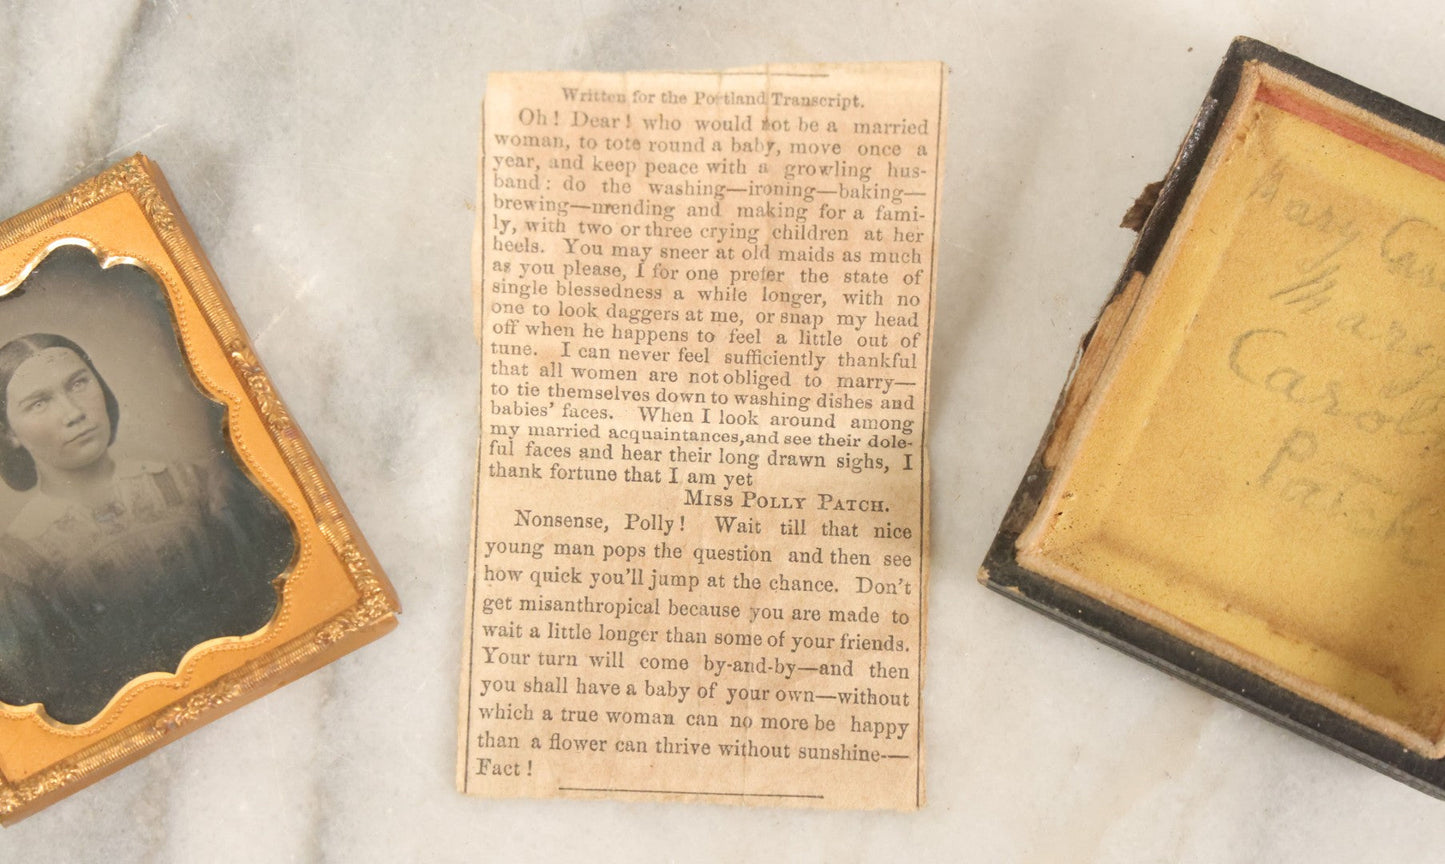 Written for the Portland Transcript.
Oh! Dear! who would not be a married
woman, to tote round a baby, move once a
year, and keep peace with a growling hus-
band: do the washing—ironing—baking—
brewing—mending and making for a fami-
ly, with two or three crying children at her
heels. You may sneer at old maids as much
as you please, I for one prefer the state of
single blessedness a while longer, with no
one to look daggers at me, or snap my head
off when he happens to feel a little out of
tune. I can never feel sufficiently thankful
that all women are not obliged to marry—
to tie themselves down to washing dishes and
babies' faces. When I look around among
my married acquaintances, and see their dole-
ful faces and hear their long drawn sighs, I
thank fortune that I am yet
MISS POLLY PATCH.
Nonsense, Polly! Wait till that nice
young man pops the question and then see
how quick you'll jump at the chance. Don't
get misanthropical because you are made to
wait a little longer than some of your friends.
Your turn will come by-and-by—and then
you shall have a baby of your own—without
which a true woman can no more be happy
than a flower can thrive without sunshine—
Fact!
Mary
Mary